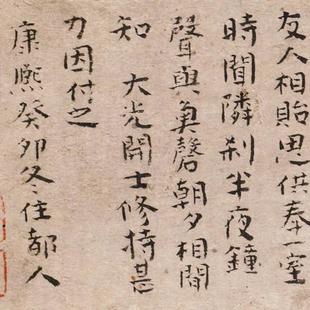 友人相貽思供奉一室
時聞隣刹半夜鐘
聲與魚磬朝夕相聞
知 大光開士修持甚
力因付之
康熙癸卯冬住都人